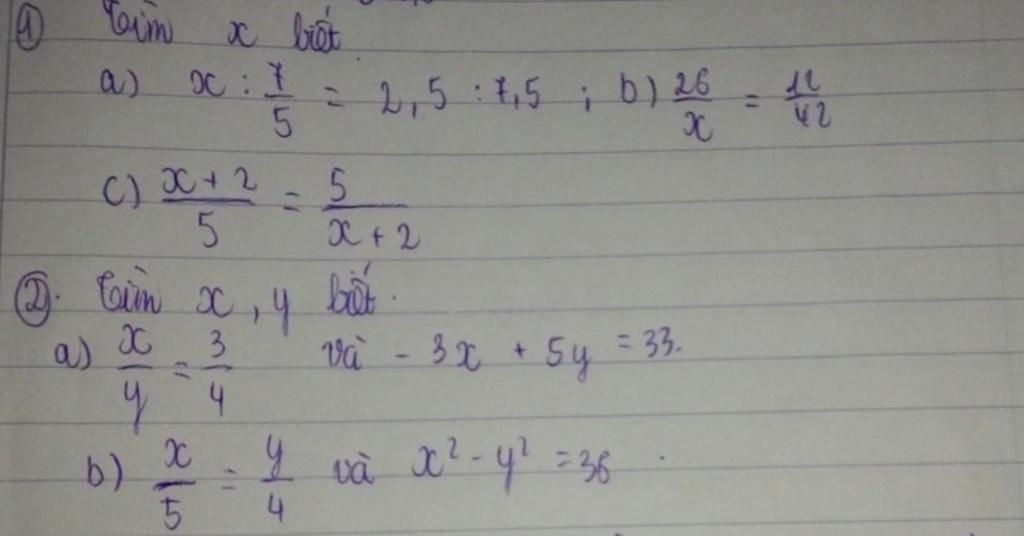 ① Tìm x biết
a) x : 7/5 = 2,5 : 7,5 ; b) 26/x = 12/42
c) x+2/5 = 5/x+2
②. Tìm x, y biết.
a) x/y = 3/4 và - 3x + 5y = 33.
b) x/5 = y/4 và x² - y² = 36